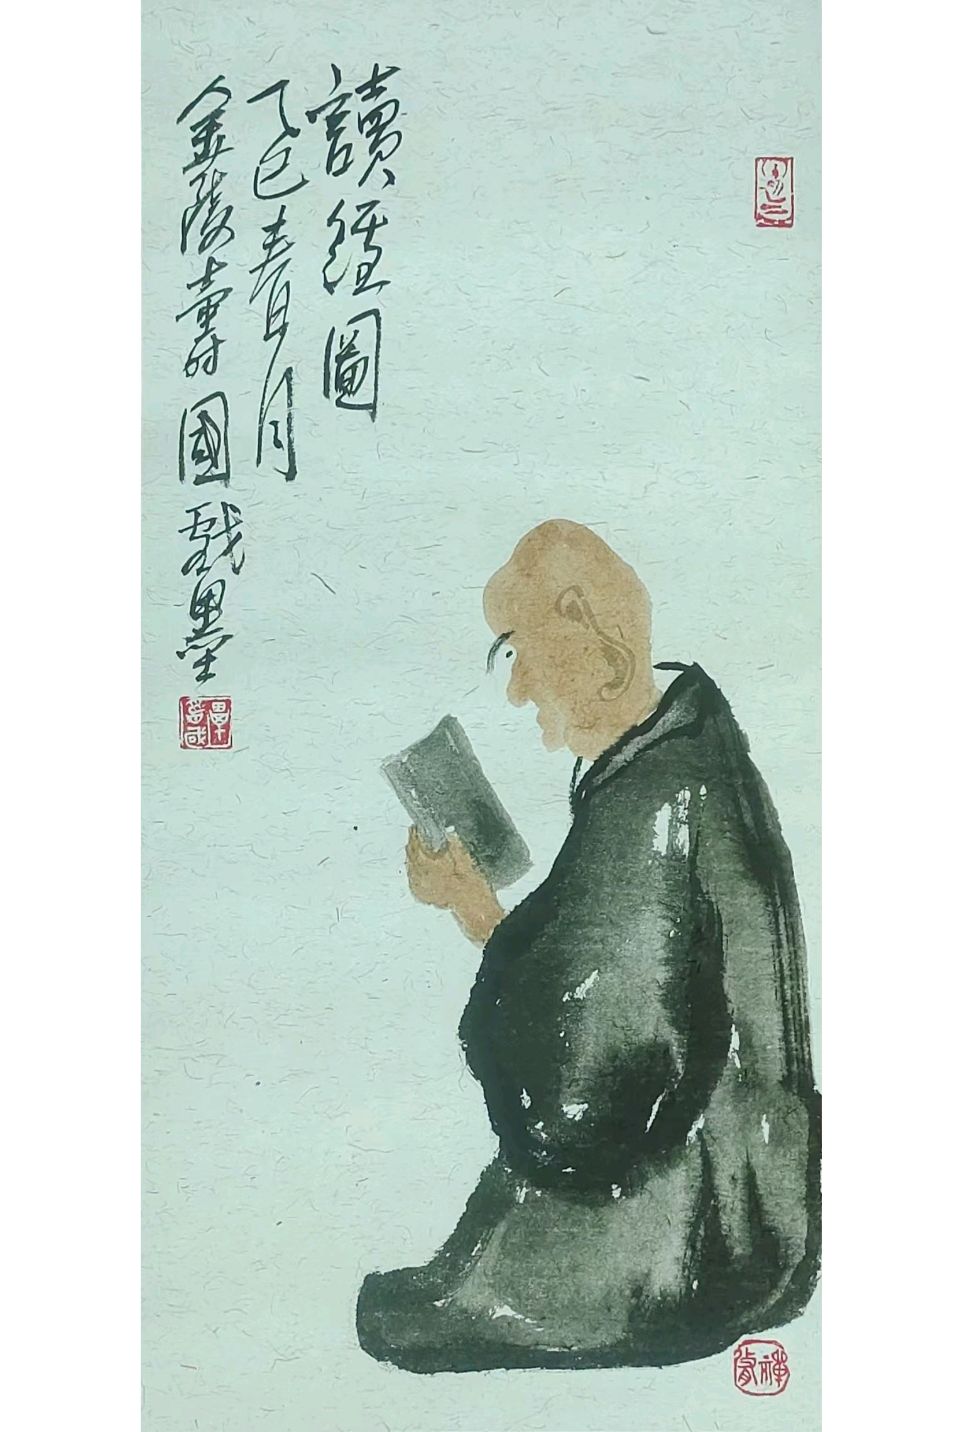 讀經圖
乙巳春月
金陵壽國戲墨